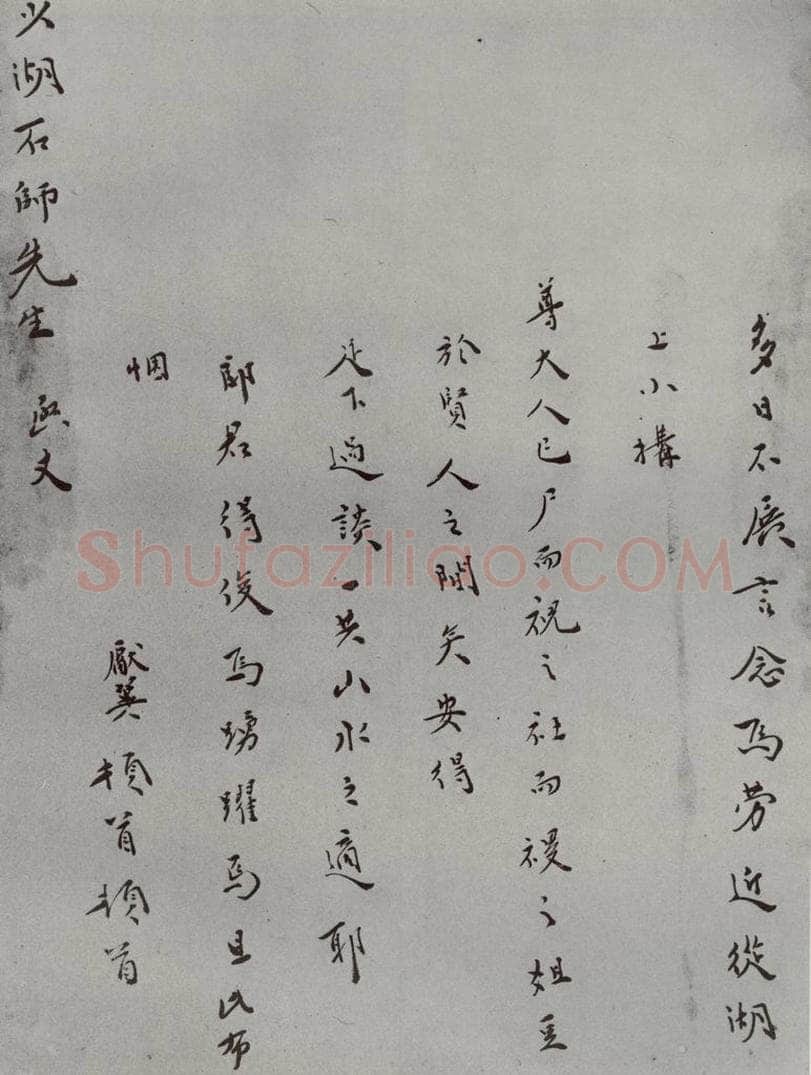 多日不展言念為勞近從湖
上小構
尊大人已尸而祝之社而稷之俎豆
於賢人之閒矣安得
足下過談一共山水之適耶
郎君得俊為踴躍為且此布
悃
厥翼頓首頓首
湖石師先生 函丈
Shufaziliao.COM